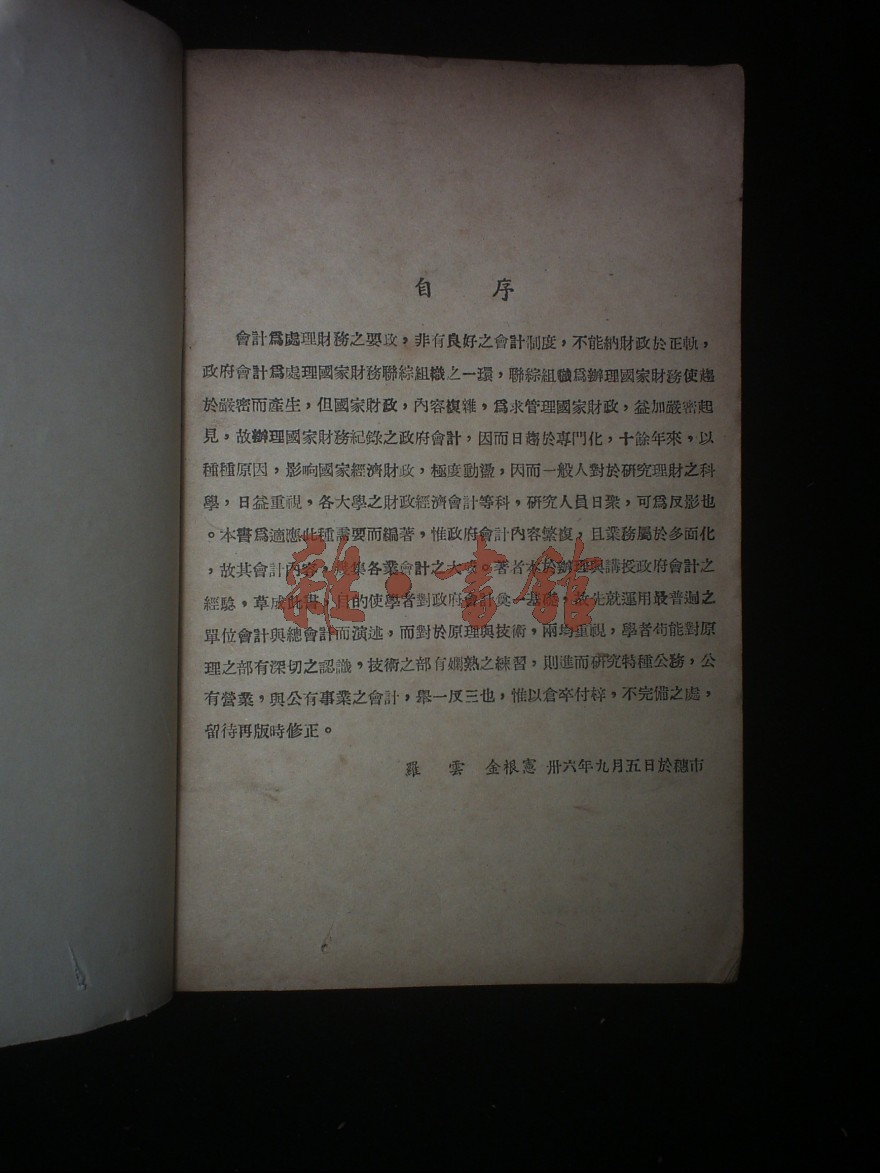 自 序
會計爲處理財務之要政，非有良好之會計制度，不能納財政於正軌，
政府會計爲處理國家財務聯綜組織之一環，聯綜組織爲辦理國家財務使趨
於嚴密而產生，但國家財政，內容複雜，爲求管理國家財政，益加嚴密起
見，故辦理國家財務紀錄之政府會計，因而日趨於專門化，十餘年來，以
種種原因，影响國家經濟財政，極度動盪，因而一般人對於研究理財之科
學，日益重視，各大學之財政經濟會計等科，研究人員日衆，可爲反影也
。本書爲適應此種需要而編著，惟政府會計內容繁複，且業務屬於多面化
，故其會計內容，集各業會計之大成。著者本於辦理與講授政府會計之
經驗，草成此書，目的使學者對政府會計奠一基礎，故先就運用最普遍之
單位會計與總會計而演述，而對於原理與技術，兩均重視，學者苟能對原
理之部有深切之認識，技術之部有嫻熟之練習，則進而研究特種公務，公
有營業，與公有事業之會計，舉一反三也，惟以倉卒付梓，不完備之處，
留待再版時修正。
羅 雲 金根憲 卅六年九月五日於穗市
雜·書館